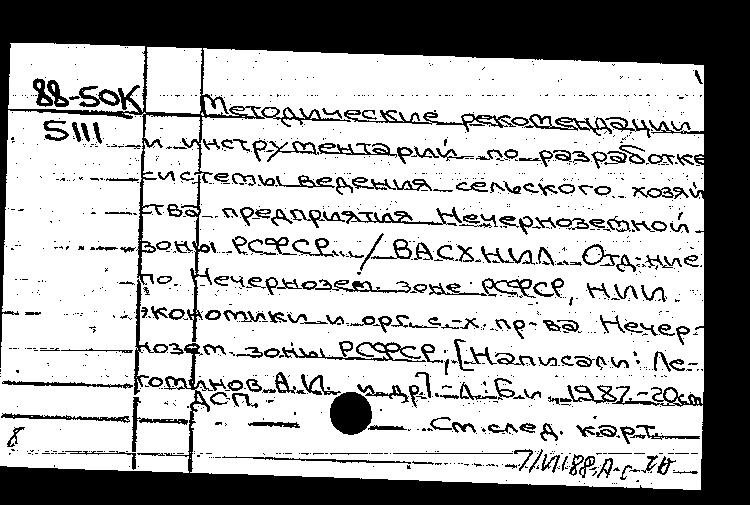 88-50К
5111
Методические рекомендации
и инструментарий по разработке
системы ведения сельского хозяй
ства предприятия Нечерноземной
зоны РСФСР... / ВАСХНИЛ. Отд-ние
по Нечернозем. зоне РСФСР, НИИ
экономики и орг. с.-х. пр-ва Нечер-
нозем. зоны РСФСР; [Написали: Ле-
готинов А.И. и др]. - Л.: Б.и. 1987. - 20см
ДСП. -
См. след. карт.
8
7/VI 88.